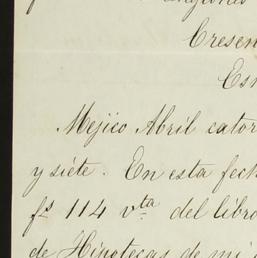 Cresen
Es
Mejico Abril cator
y siete. En esta fech
fs 114 vta del libro
de Hipotecas de mi